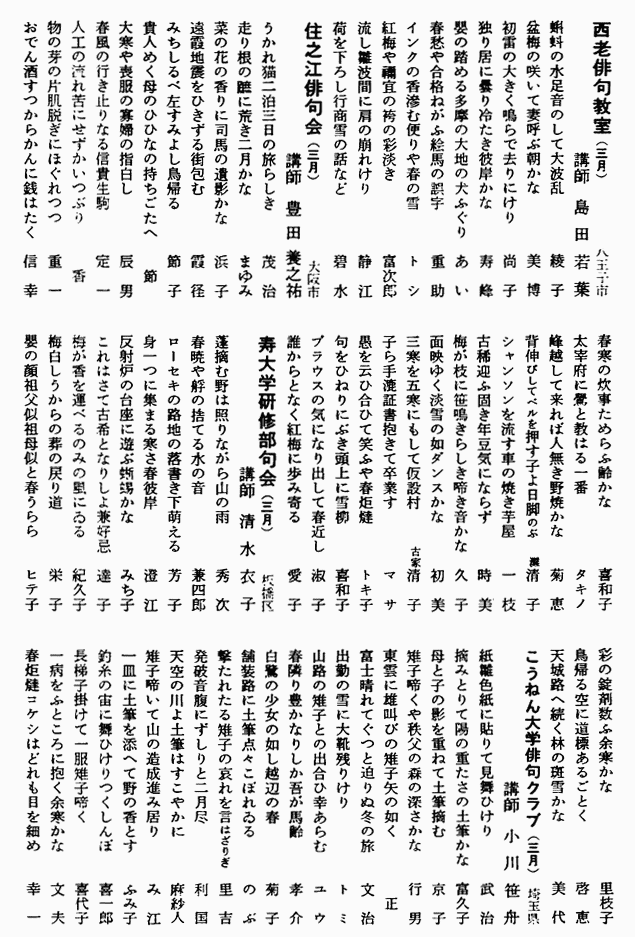 西老俳句教室（三月）
八王子市
講師 島田 若葉
蝌蚪の水足音のして大波乱 綾子
盆梅の咲いて妻呼ぶ朝かな 美博
初雷の大きく鳴らで去りにけり 尚子
独り居に曇り冷たき彼岸かな 寿峰
嬰の踏める多摩の大地の犬ふぐり あい
春愁や合格ねがふ絵馬の誤字 重助
インクの香滲む便りや春の雪 トシ
紅梅や禰宜の袴の彩淡き 富次郎
流し雛波間に肩の崩れけり 静江
荷を下ろし行商雪の話など 碧水
住之江俳句会（三月）
大阪市
講師 豊田 養之祐
うかれ猫二泊三日の旅らしき 茂治
走り根の雌に荒き二月かな まゆみ
菜の花の香りに司馬の遺影かな 浜子
遠霞地震をひきずる街包む 霞径
みちしるべ左すみよし鳥帰る 節子
貴人めく母のひひなの持ちごたへ 節
春風の行き止りなる信貴生駒 定一
大寒や喪服の寡婦の指白し 辰男
人工の流れ苦にせずかいつぶり 香
物の芽の片肌脱ぎにほぐれつつ 重一
おでん酒すつからかんに銭はたく 信幸
春寒の炊事ためらふ齢かな 喜和子
太宰府に鷽と教はる一番 タキノ
峰越して来れば人無き野焼かな 菊恵
背伸びしてベルを押す子よ日脚のぶ 灘 清子
シャンソンを流す車の焼き芋屋 一枝
古稀迎ふ固き年豆気にならず 時美
梅が枝に笹鳴きらしき啼き音かな 久子
面映ゆく淡雪の如ダンスかな 初美
三寒を五寒にもして仮設村 古家 清子
子ら手漉証書抱きて卒業す マサ
愚を云ひ合ひて笑ふや春炬燵 トキ子
句をひねりにぶき頭上に雪柳 喜和子
ブラウスの気になり出して春近し 淑子
誰からとなく紅梅に歩み寄る 愛子
寿大学研修部句会（三月）
板橋区
講師 清水 衣子
蓬摘む野は照りながら山の雨 秀次
春暁や艀の捨てる水の音 兼四郎
ローセキの路地の落書き下萌える 芳子
身一つに集まる寒さ春彼岸 澄江
反射炉の台座に遊ぶ蜥蜴かな みち子
これはさて古希となりしよ兼好忌 達子
梅が香を運べるのみの風にゐる 紀久子
梅白しうからの葬の戻り道 栄子
嬰の顔祖父似祖母似と春うらら ヒデ子
彩の錠剤数ふ余寒かな 里枝子
鳥帰る空に道標あるごとく 啓恵
天城路へ続く林の斑雪かな 美代
こうねん大学俳句クラブ（三月）
埼玉県
講師 小川 笹舟
紙雛色紙に貼りて見舞ひけり 武治
摘みとりて陽の重たさの土筆かな 富久子
母と子の影を重ねて土筆摘む 京子
雉子啼くや秩父の森の深さかな 行男
東雲に雄叫びの雉子矢の如く 正
富士晴れてぐつと迫りぬ冬の旅 文治
出勤の雪に大靴残りけり トミ
山路の雉子との出合ひ幸あらむ ユウ
春隣り豊かなりしか吾が馬齢 孝介
白鷺の少女の如し越辺の春 菊子
舗装路に土筆点々こぼれゐる のぶ
撃たれたる雉子の哀れを言はざりぎ 里吉
発破音腹にずしりと二月尽 利国
天空の川よ土筆はすこやかに 麻紗人
雉子啼いて山の造成進み居り み江
一皿に土筆を添へて野の香とす ふみ子
釣糸の宙に舞ひけりつくしんぼ 喜一郎
長梯子掛けて一服雉子啼く 喜代子
一病をふところに抱く余寒かな 文夫
春炬燵コケシはどれも目を細め 幸一